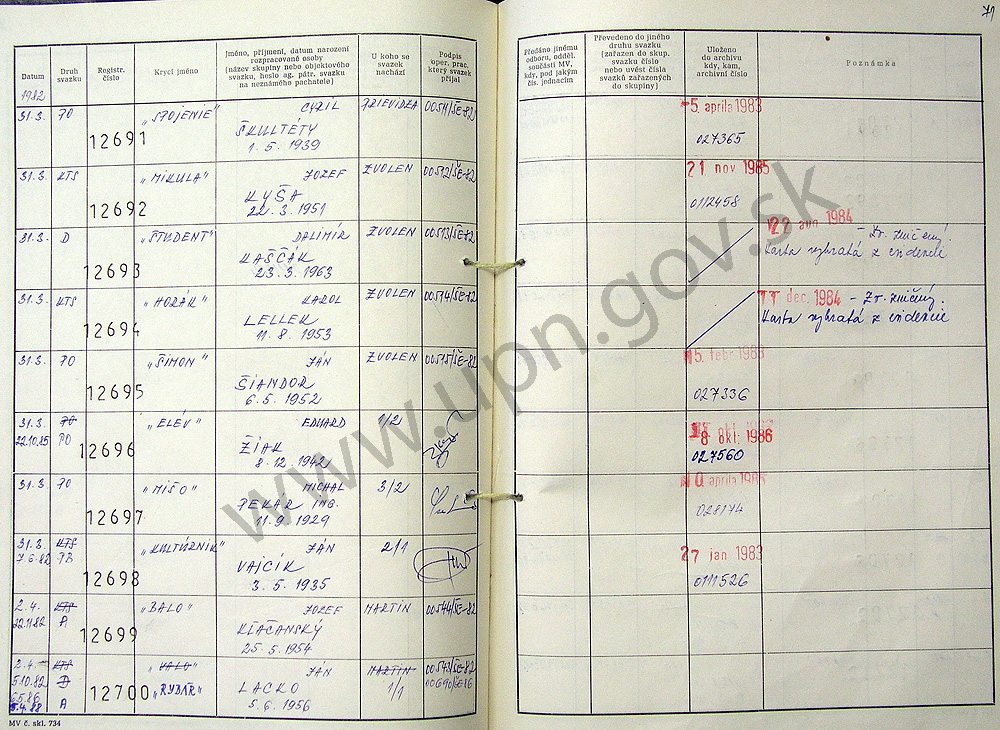 71
Datum
Druh svazku
Registr. číslo
Krycí jméno
Jméno, příjmení, datum narození
rozpracované osoby
(název skupiny nebo objektového
svazku, heslo ag. pátr. svazku
na neznámého pachatele)
U koho se
svazek
nachází
Podpis
oper. prac.
který svazek
přijal
Předáno jinému
odboru, odděl.
součásti MV,
kdy, pod jakým
čís. jednacím
Převedeno do jiného
druhu svazku
(zařazen do skup.
svazku číslo
nebo uvést čísla
svazků zařazených
do skupiny)
Uloženo
do archivu
kdy, kam,
archivní číslo
Poznámka
1982
31.3. PO 12691 „SPOJENIE" CYRIL PRIEVIDZA 00511/SE-82 5. apríla 1983
ŠKULTÉTY
1. 5. 1939 027365
31.3. KTS 12692 „MIKULA" JOZEF ZVOLEN 00512/SE-82 21 nov 1985
KYŠA
22. 3. 1951 0112458
31.3. D 12693 „ŠTUDENT" DALIMÍR ZVOLEN 00513/SE-82 22 1984 - Zv. zničený.
KAŠČÁK Karta vybratá z evidencie
23. 3. 1963
31.3. KTS 12694 „HORÁK" KAROL ZVOLEN 00514/SE-82 11 dec. 1984 - Zv. zničený.
LELLEK Karta vybratá z evidencie
11. 8. 1953
31.3. PO 12695 „ŠIMON" JÁN ZVOLEN 00515/SE-82 15. febr 1983
ŠIANDOR
6. 5. 1952 027336
31.3. PO 12696 „ELÉV" EDUARD 1/2 8 okt. 1986
22.10.85 PO ŽIAK
8. 12. 1942 027560
31.3. PO 12697 „MIŠO" MICHAL 3/2 apríla
PEKÁR ING.
11. 9. 1929 028174
31.3. KTS 12698 „KULTÚRNIK" JÁN 2/1 27 jan 1983
7.6.82 PB VAJCÍK
3. 5. 1935 0111526
2.4. KTS 12699 „BALO" JOZEF MARTIN 00544/SE-82
22.11.82 A KĽAČANSKÝ
25. 5. 1954
2.4. KTS 12700 „VALO" JÁN MARTIN 00543/SE-82
5.10.82 D „RYBÁŘ" LACKO 1/1 00690/SE-86
6.5.86
5.4.88 A 5. 6. 1956
MV č. skl. 734
www.upn.gov.sk